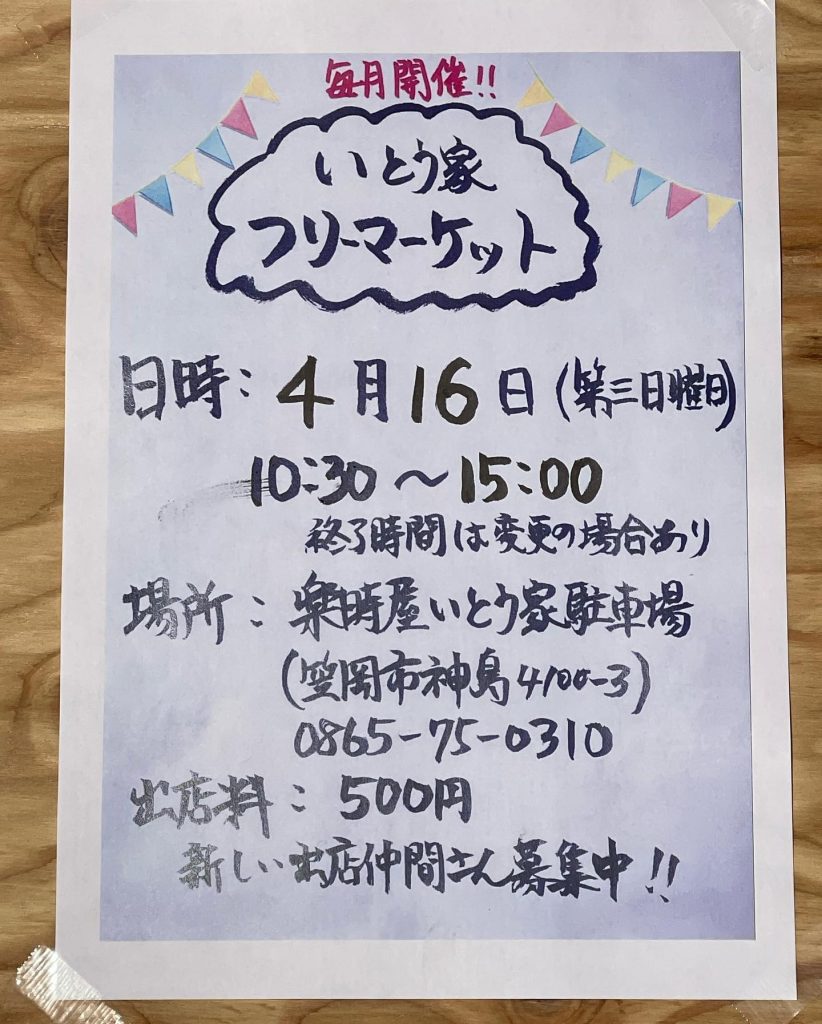 毎月開催!!
いとう家
フリーマーケット
日時：4月16日(第三日曜日)
10:30〜15:00
終了時間は変更の場合あり
場所：楽時屋いとう家駐車場
(笠岡市神島4100-3)
0865-75-0310
出店料：500円
新しい出店仲間さん募集中!!